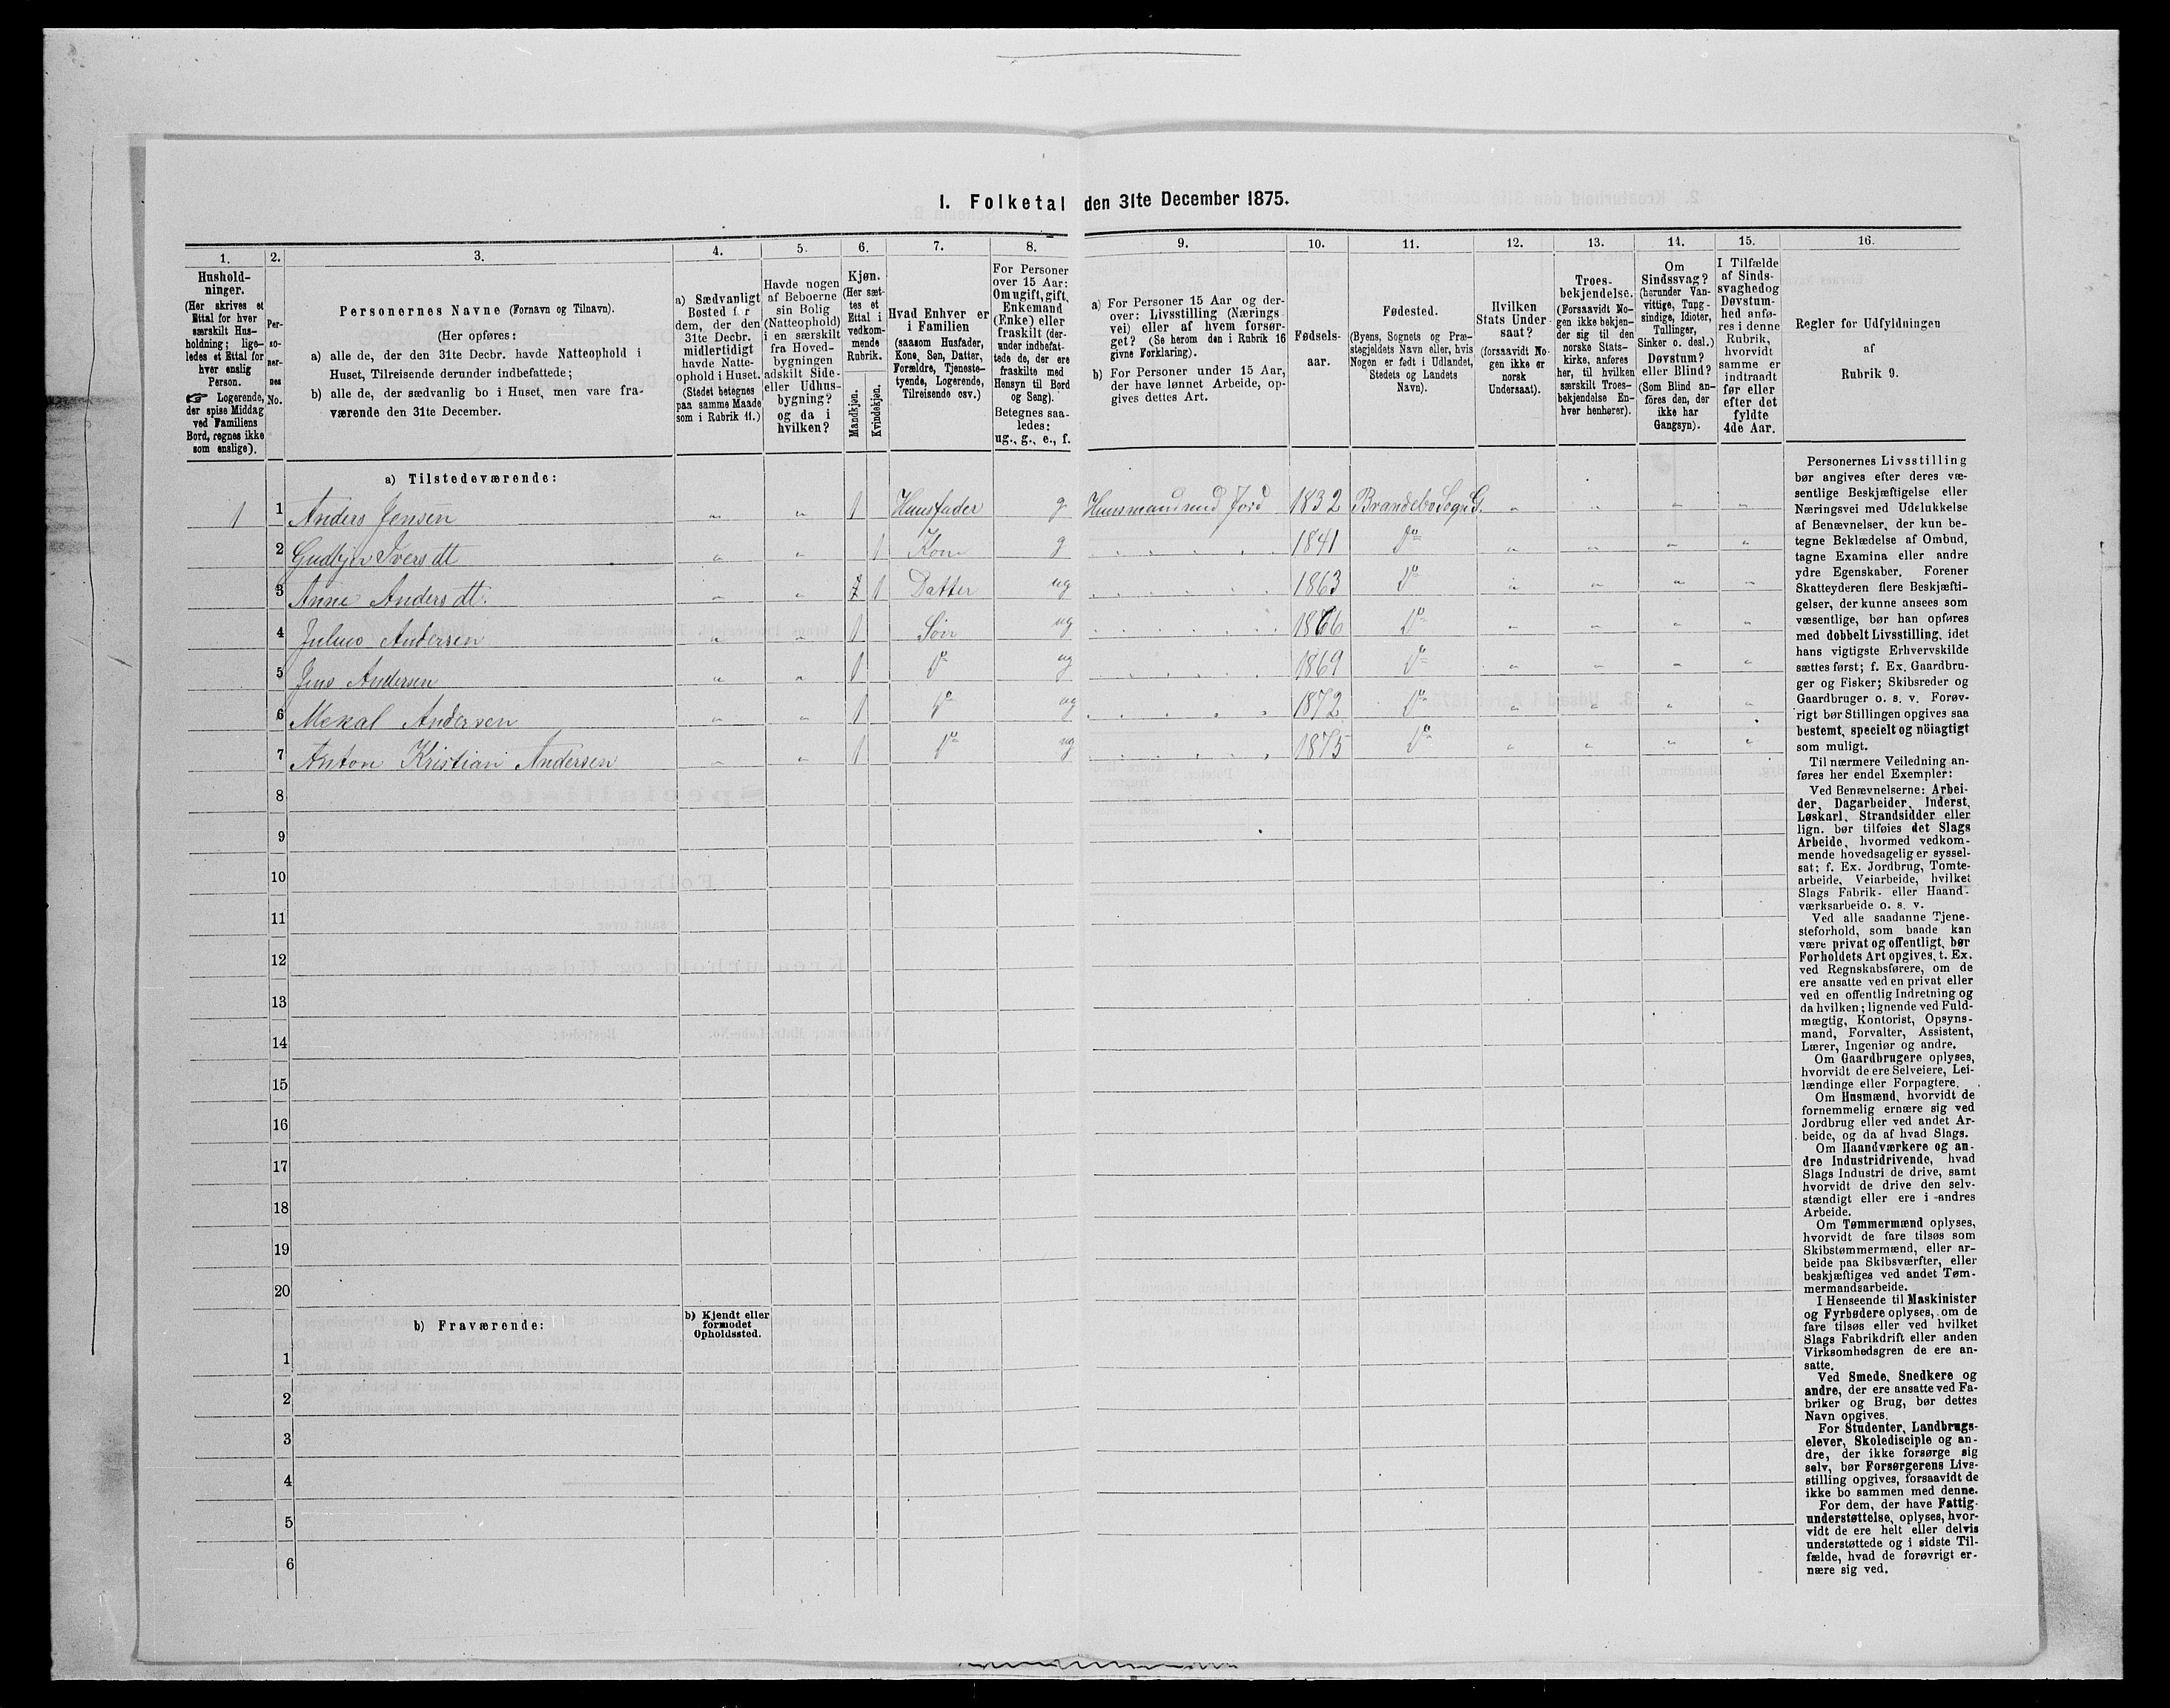 I. Folketal den 31te December 1875.
1. 2. 3. 4. 5. 6. 7. 8. 9. 10. 11. 12. 13. 14. 15. 16.
Hushold-
ninger.
(Her skrives et
Ettal for hver
særskilt Hus-
holdning; lige-
ledes et Ettal for
hver enslig
Person.
☞ Logerende,
der spise Middag
ved Familiens
Bord, regnes ikke
som enslige).
Per-
so-
ner-
nes
No.
Personernes Navne (Fornavn og Tilnavn).
(Her opføres:
a) alle de, der den 31te Decbr. havde Natteophold i
Huset, Tilreisende derunder indbefattede;
b) alle de, der sædvanlig bo i Huset, men vare fra-
værende den 31te December.
a) Sædvanligt
Bosted for
dem, der den
31te Decbr.
midlertidigt
havde Natte-
ophold i Huset.
(Stedet betegnes
paa samme Maade
som i Rubrik 11.)
Havde nogen
af Beboerne
sin Bolig
(Natteophold)
i en særskilt
fra Hoved-
bygningen
adskilt Side-
eller Udhus-
bygning?
og da i
hvilken?
Kjøn.
(Her sæt-
tes et
Ettal i
vedkom-
mende
Rubrik.
Mandkjøn.
Kvindekjøn.
Hvad Enhver er
i Familien
(saasom Husfader,
Kone, Søn, Datter,
Forældre, Tjeneste-
tyende, Logerende,
Tilreisende osv.)
For Personer
over 15 Aar:
Om ugift, gift,
Enkemand
(Enke) eller
fraskilt (der-
under indbefat-
tede de, der ere
fraskilte med
Hensyn til Bord
og Seng).
Betegnes saa-
ledes:
ug., g., e., f.
a) For Personer 15 Aar og der-
over: Livsstilling (Nærings-
vei) eller af hvem forsør-
get? (Se herom den i Rubrik 16
givne Forklaring).
b) For Personer under 15 Aar,
der have lønnet Arbeide, op-
gives dettes Art.
Fødsels-
aar.
Fødested.
(Byens, Sognets og Præ-
stegjeldets Navn eller, hvis
Nogen er født i Udlandet,
Stedets og Landets
Navn).
Hvilken
Stats Under-
saat?
(forsaavidt No-
gen ikke er
norsk
Undersaat).
Troes-
bekjendelse.
(Forsaavidt No-
gen ikke bekjen-
der sig til den
norske Stats-
kirke, anføres
her, til hvilken
særskilt Troes-
bekjendelse En-
hver henhører).
Om
Sindssvag?
(herunder Van-
vittige, Tung-
sindige, Idioter,
Tullinger,
Sinker o. desl.)
Døvstum?
eller Blind?
(Som Blind an-
føres den, der
ikke har
Gangsyn).
I Tilfælde
af Sinds-
svaghed og
Døvstum-
hed anfø-
res i denne
Rubrik,
hvorvidt
samme er
indtraadt
før eller
efter det
fyldte
4de Aar.
Regler for Udfyldningen
af
Rubrik 9.
a) Tilstedeværende:
1 1 Anders Jensen " " 1 Huusfader g Huusmand med Jord 1832 Brandebo Sogn G. " " " "
2 " " 1 Kone g 1841 Do " " " "
3 Anne Andersdt. " " 1 Datter ug 1863 Do " " " "
4 Julius Andersen " " 1 Søn ug 1866 Do " " " "
5 Jens Andersen " " 1 Do ug 1869 Do " " " "
6 Mekal Andersen " " 1 Do ug 1872 Do " " " "
7 Anton Kristian Andersen " " 1 Do ug 1875 Do " " " "
8
9
10
11
12
13
14
15
16
17
18
19
20
b) Fraværende:
b) Kjendt eller
formodet
Opholdssted.
1
2
3
4
5
6
Personernes Livsstilling
bør angives efter deres væ-
sentlige Beskjæftigelse eller
Næringsvei med Udelukkelse
af Benævnelser, der kun be-
tegne Beklædelse af Ombud,
tagne Examina eller andre
ydre Egenskaber. Forener
Skatteyderen flere Beskjæfti-
gelser, der kunne ansees som
væsentlige, bør han opføres
med dobbelt Livsstilling, idet
hans vigtigste Erhvervskilde
sættes først; f. Ex. Gaardbru-
ger og Fisker; Skibsreder og
Gaardbruger o. s. v. Forøv-
rigt bør Stillingen opgives saa
bestemt, specielt og nöiagtigt
som muligt.
Til nærmere Veiledning an-
føres her endel Exempler:
Ved Benævnelserne: Arbei-
der, Dagarbeider, Inderst,
Løskarl, Strandsidder eller
lign. bør tilføies det Slags
Arbeide, hvormed vedkom-
mende hovedsagelig er syssel-
sat; f. Ex. Jordbrug, Tomte-
arbeide, Veiarbeide, hvilket
Slags Fabrik- eller Haand-
værksarbeide o. s. v.
Ved alle saadanne Tjene-
steforhold, som baade kan
være privat og offentligt, bør
Forholdets Art opgives, t. Ex.
ved Regnskabsførere, om de
ere ansatte ved en privat eller
ved en offentlig Indretning og
da hvilken; lignende ved Fuld-
mægtig, Kontorist, Opsyns-
mand, Forvalter, Assistent,
Lærer, Ingeniør og andre.
Om Gaardbrugere oplyses,
hvorvidt de ere Selveiere, Lei-
lændinge eller Forpagtere.
Om Husmænd, hvorvidt de
fornemmelig ernære sig ved
Jordbrug eller ved andet Ar-
beide, og da af hvad Slags.
Om Haandværkere og an-
dre Industridrivende, hvad
Slags Industri de drive, samt
hvorvidt de drive den selv-
stændigt eller ere i andres
Arbeide.
Om Tømmermænd oplyses,
hvorvidt de fare tilsøs som
Skibstømmermænd, eller ar-
beide paa Skibsværfter, eller
beskjæftiges ved andet Tøm-
mermandsarbeide.
I Henseende til Maskinister
og Fyrbødere oplyses, om de
fare tilsøs eller ved hvilket
Slags Fabrikdrift eller anden
Virksomhedsgren de ere an-
satte.
Ved Smede, Snedkere og
andre, der ere ansatte ved Fa-
briker og Brug, bør dettes
Navn opgives.
For Studenter, Landbrugs-
elever, Skoledisciple og an-
dre, der ikke forsørge sig
selv, bør Forsørgerens Livs-
stilling opgives, forsaavidt de
ikke bo sammen med denne.
For dem, der have Fattig-
understøttelse, oplyses, hvor-
vidt de ere helt eller delvis
understøttede og i sidste Til-
fælde, hvad de forøvrigt er-
nære sig ved.